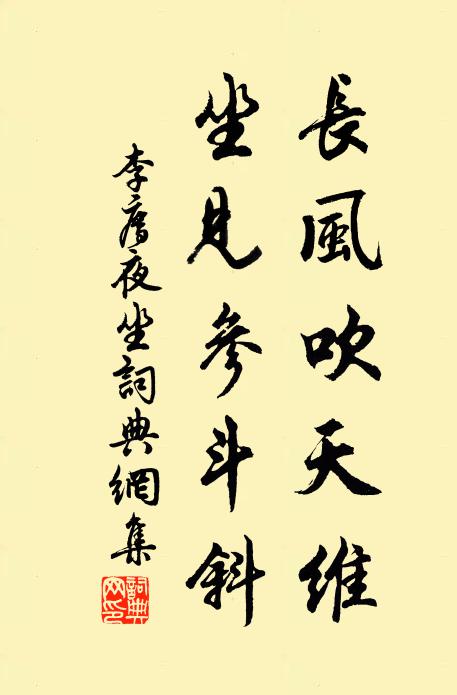 長風吹天維
坐見參斗斜
李廌夜坐詞典網集
詞典網印